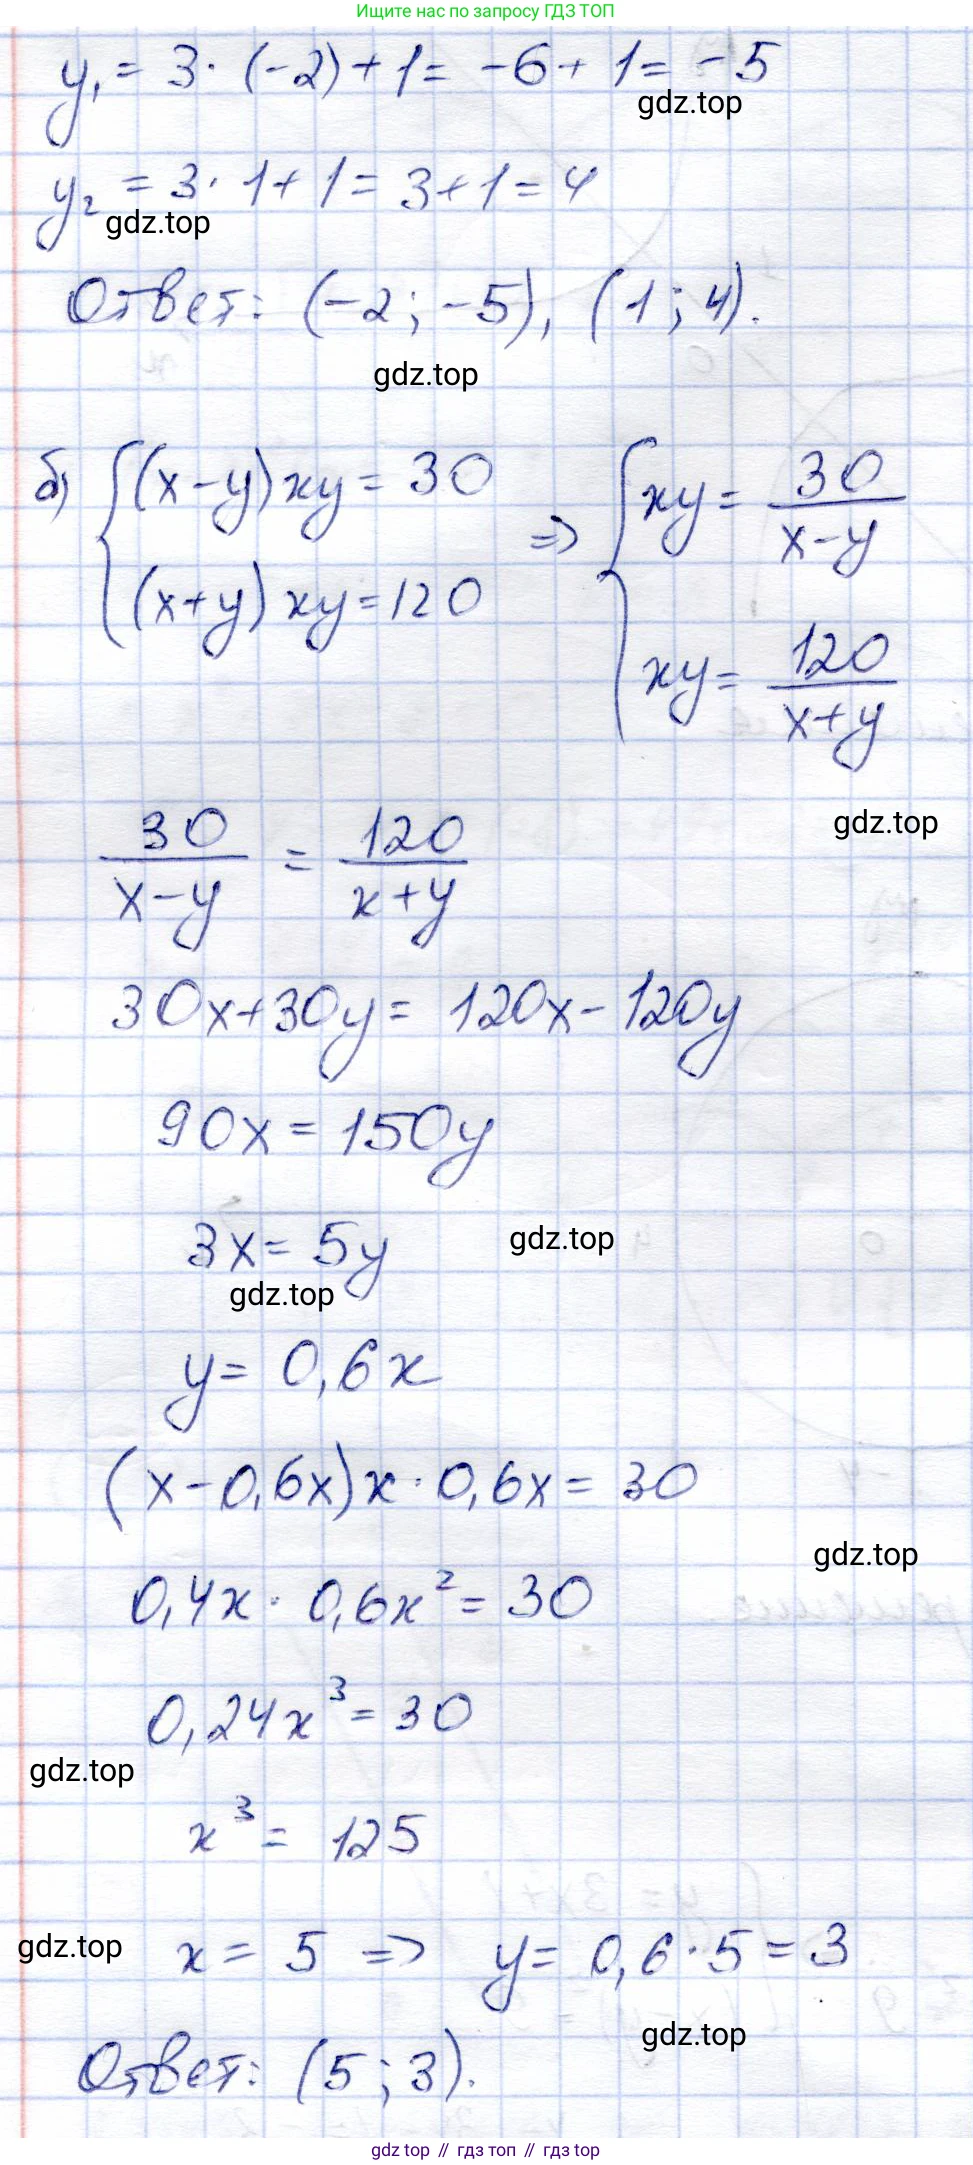 Ищите нас по запросу ГДЗ ТОП
y₁ = 3 · (-2) + 1 = -6 + 1 = -5
gdz.top
y₂ = 3 · 1 + 1 = 3 + 1 = 4
gdz.top
Ответ: (-2; -5), (1; 4).
gdz.top
б) { (x-y)xy = 30 => { xy = 30/(x-y)
(x+y)xy = 120 xy = 120/(x+y)
gdz.top
30/(x-y) = 120/(x+y)
30x + 30y = 120x - 120y
90x = 150y
3x = 5y
gdz.top
gdz.top
y = 0,6x
(x - 0,6x)x · 0,6x = 30
gdz.top
0,4x · 0,6x² = 30
0,24x³ = 30
gdz.top
x³ = 125
gdz.top
x = 5 => y = 0,6 · 5 = 3
gdz.top
Ответ: (5; 3).
gdz top // гдз топ // gdz top